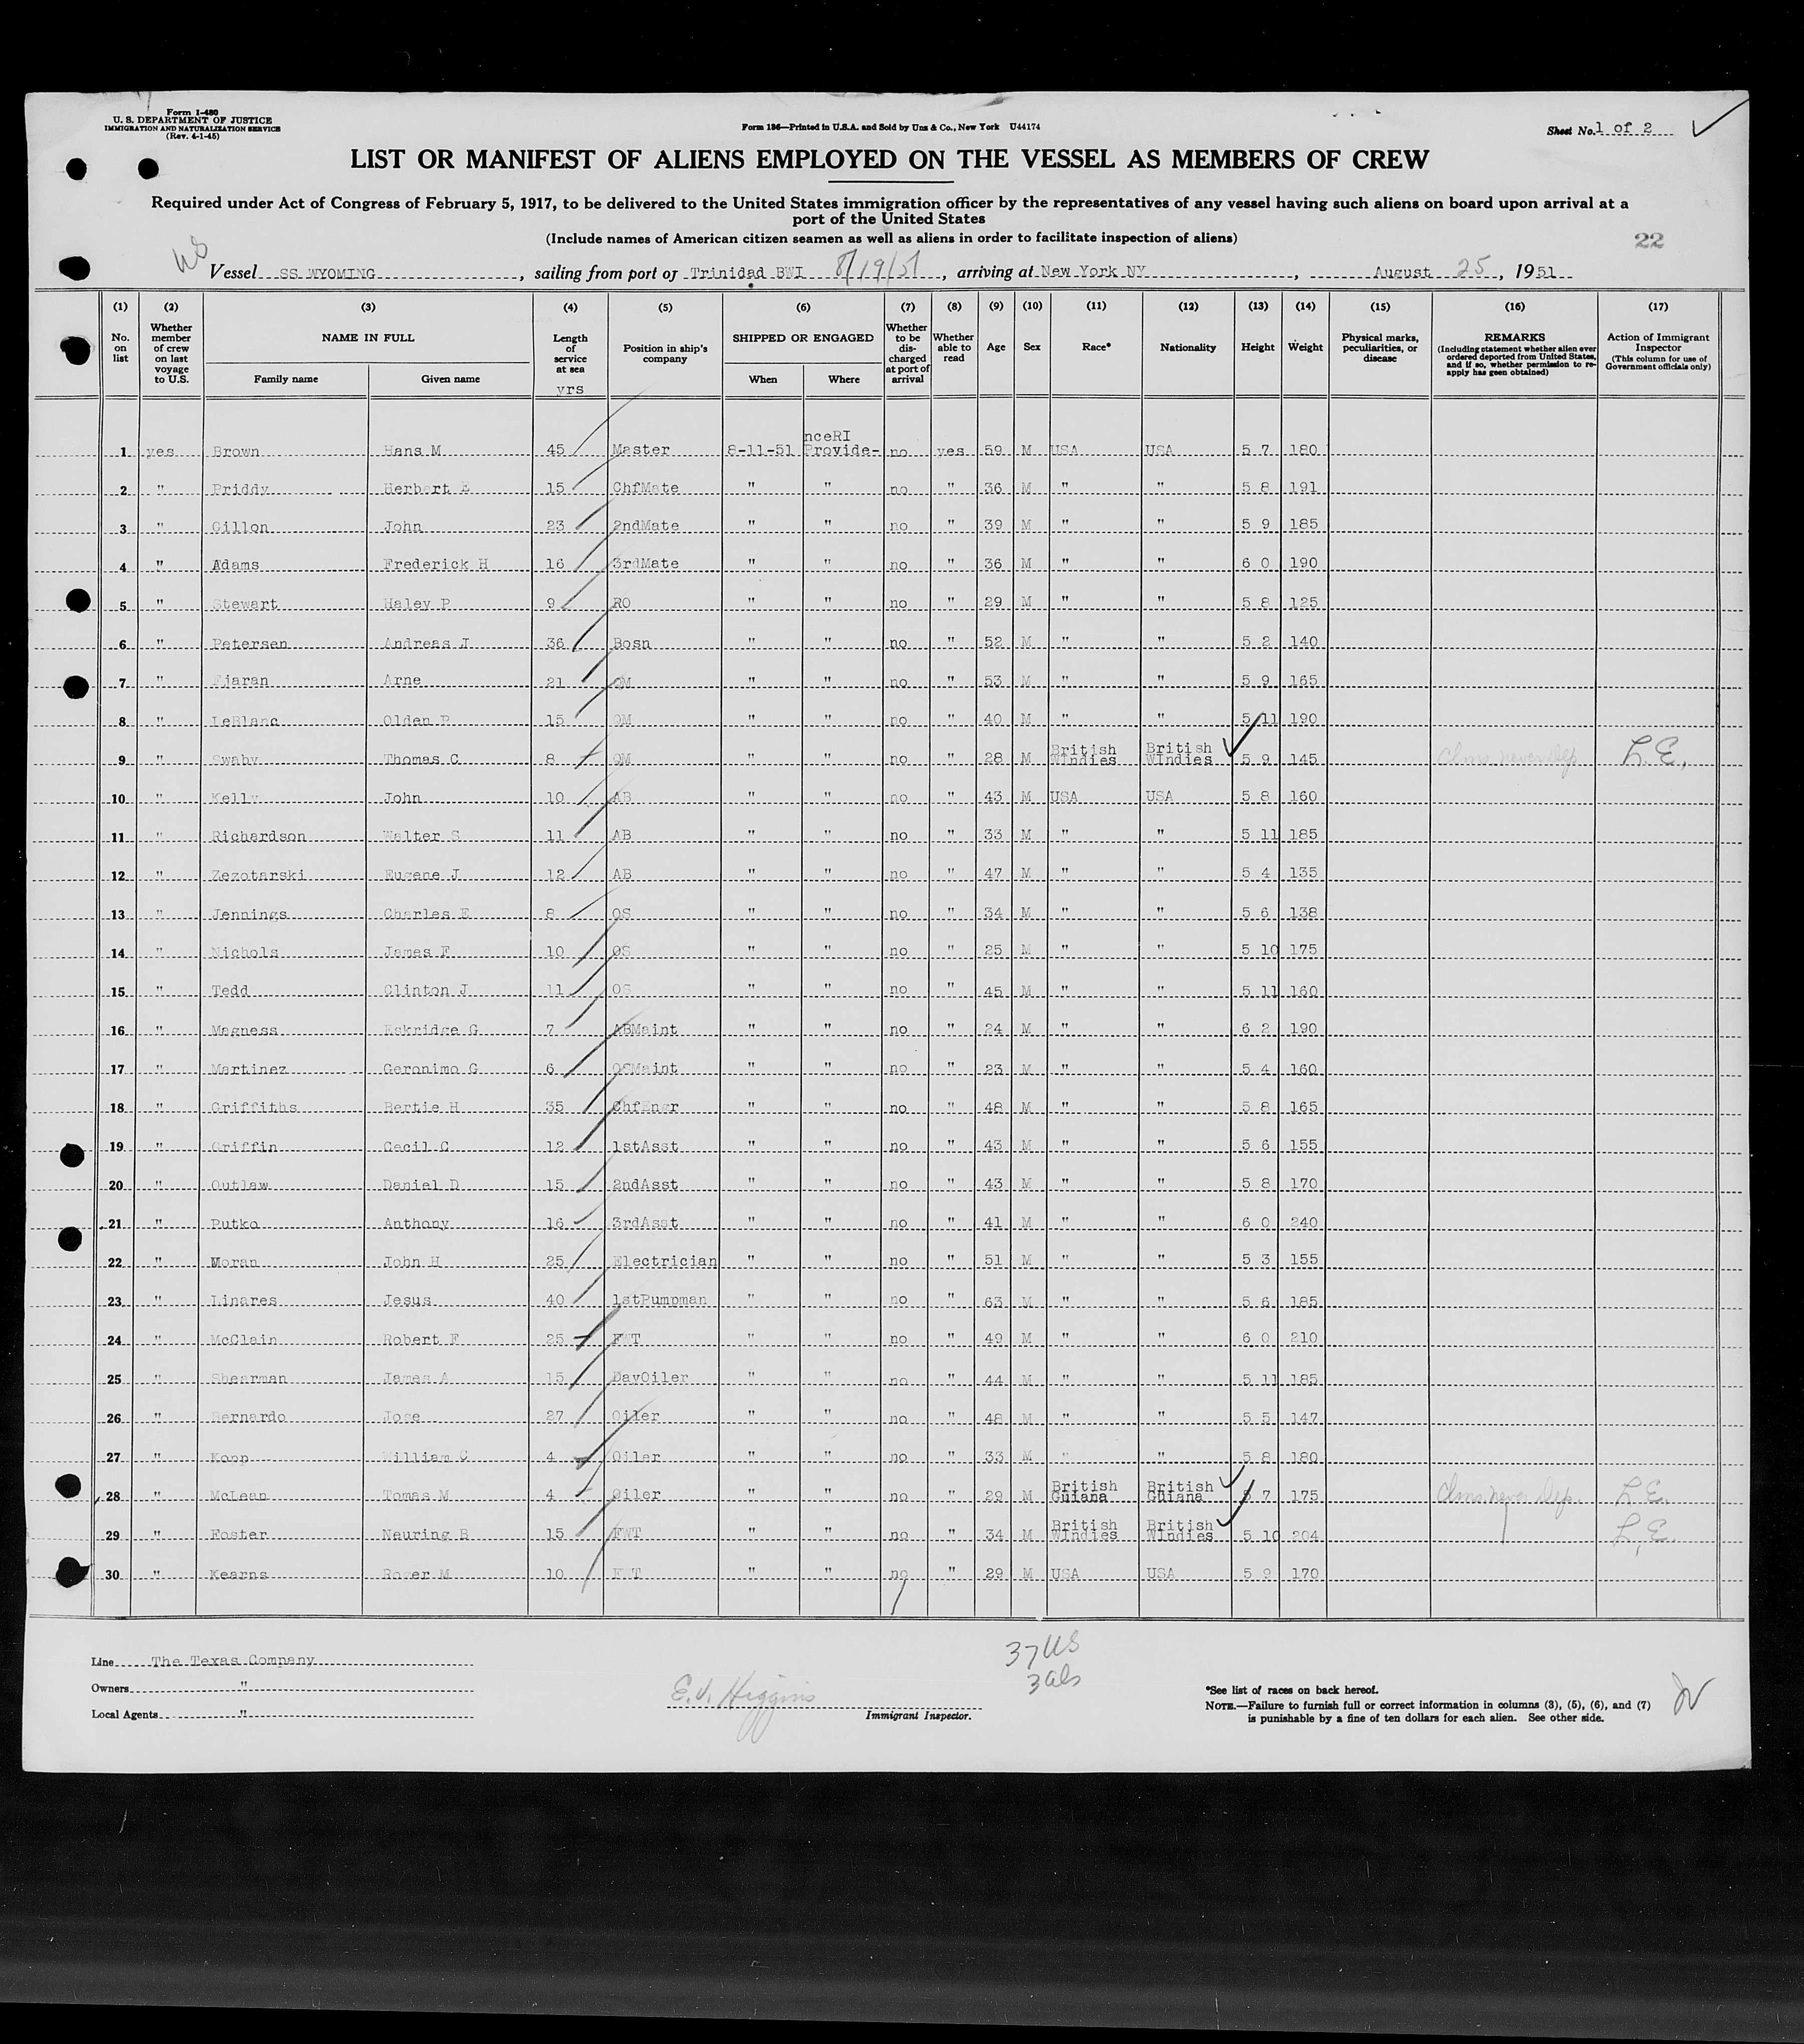 Form I-480
U. S. DEPARTMENT OF JUSTICE
IMMIGRATION AND NATURALIZATION SERVICE
(Rev. 4-1-45)
Form 186—Printed in U.S.A. and Sold by Unz & Co., New York U44174
Sheet No. 1 of 2
LIST OR MANIFEST OF ALIENS EMPLOYED ON THE VESSEL AS MEMBERS OF CREW
Required under Act of Congress of February 5, 1917, to be delivered to the United States immigration officer by the representatives of any vessel having such aliens on board upon arrival at a
port of the United States
(Include names of American citizen seamen as well as aliens in order to facilitate inspection of aliens)
22
US
Vessel SS WYOMING, sailing from port of Trinidad BWI 8/19/51, arriving at New York NY, August 25, 1951
(1) (2) (3) (4) (5) (6) (7) (8) (9) (10) (11) (12) (13) (14) (15) (16) (17)
No. on list
Whether member of crew on last voyage to U.S.
NAME IN FULL
Family name Given name
Length of service at sea
yrs
Position in ship's company
SHIPPED OR ENGAGED
When Where
Whether to be dis- charged at port of arrival
Whether able to read
Age
Sex
Race*
Nationality
Height
Weight
Physical marks, peculiarities, or disease
REMARKS
(Including statement whether alien ever ordered deported from United States, and if so, whether permission to re- apply has geen obtained)
Action of Immigrant Inspector
(This column for use of Government officials only)
nceRI
1 yes Brown Hans M 45 Master 8-11-51 Provide- no yes 59 M USA USA 5 7 180
2 " Priddy Herbert E 15 ChfMate " " no " 36 M " " 5 8 191
3 " Gillon John 23 2ndMate " " no " 39 M " " 5 9 185
4 " Adams Frederick H 16 3rdMate " " no " 36 M " " 6 0 190
5 " Stewart Haley P 9 RO " " no " 29 M " " 5 8 125
6 " Petersen Andreas J 36 Bosn " " no " 52 M " " 5 2 140
7 " Arne 21 QM " " no " 53 M " " 5 9 165
8 " LeBlanc Olden P 15 QM " " no " 40 M " " 5 11 190
9 " Swaby Thomas C 8 QM " " no " 28 M British WIndies British WIndies 5 9 145 Clms never Dep L.E.
10 " Kelly John 10 AB " " no " 43 M USA USA 5 8 160
11 " Richardson Walter S 11 AB " " no " 33 M " " 5 11 185
12 " Zezotarski Eugene J 12 AB " " no " 47 M " " 5 4 135
13 " Jennings Charles E 8 OS " " no " 34 M " " 5 6 138
14 " Nichols James F 10 OS " " no " 25 M " " 5 10 175
15 " Tedd Clinton J 11 OS " " no " 45 M " " 5 11 160
16 " Magness Eskridge G 7 ABMaint " " no " 24 M " " 6 2 190
17 " Martinez Geronimo G 6 OSMaint " " no " 23 M " " 5 4 160
18 " Griffiths Bertie H 35 ChfEngr " " no " 48 M " " 5 8 165
19 " Griffin Cecil C 12 1stAsst " " no " 43 M " " 5 6 155
20 " Outlaw Daniel D 15 2ndAsst " " no " 43 M " " 5 8 170
21 " Putko Anthony 16 3rdAsst " " no " 41 M " " 6 0 240
22 " Moran John H 25 Electrician " " no " 51 M " " 5 3 155
23 " Linares Jesus 40 1stPumpman " " no " 63 M " " 5 6 185
24 " McClain Robert F 25 FWT " " no " 49 M " " 6 0 210
25 " Shearman James A 15 DayOiler " " no " 44 M " " 5 11 185
26 " Bernardo Jose 27 Oiler " " no " 48 M " " 5 5 147
27 " Koop William C 4 Oiler " " no " 33 M " " 5 8 180
28 " McLean Tomas M 4 Oiler " " no " 29 M British Guiana British Guiana 5 7 175 Clms never Dep. L.E.
29 " Foster Neuring B 15 FWT " " no " 34 M British WIndies British WIndies 5 10 204 L.E.
30 " Kearns Roger M 10 FWT " " no " 29 M USA USA 5 9 170
Line The Texas Company
Owners "
Local Agents "
E. J. Higgins
Immigrant Inspector.
37 US
3 als
*See list of races on back hereof.
NOTE.—Failure to furnish full or correct information in columns (3), (5), (6), and (7)
is punishable by a fine of ten dollars for each alien. See other side.